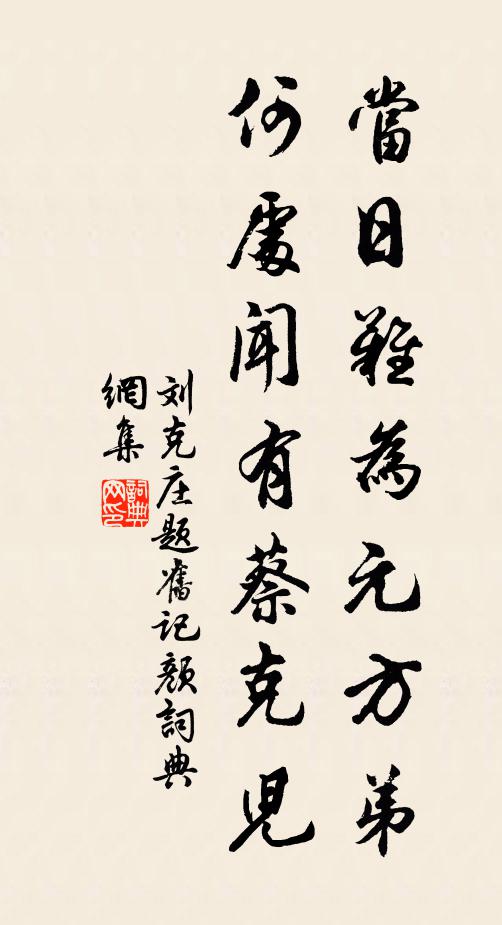 當日難為元方弟
何處聞有蔡克児
刘克庄题舊记颜詞典
網集
詞典
网印